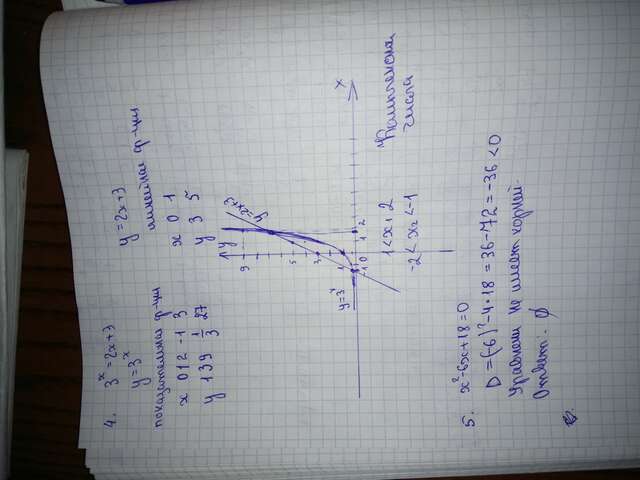 4. 3ˣ = 2x+3
y = 3ˣ
y = 2x+3
показательная ф-ция
линейная ф-ция
x 0 1 2 -1 3
y 1 3 9 1/3 27
x 0 1
y 3 5
y
9
y=2x+3
5
3
y=3ˣ
1
x
-1 0 1 2
1 < x₁ 2
-2 < x₂ < -1
Комплексные
числа
5. x²-6x+18=0
D = (-6)²-4·18 = 36-72 = -36 < 0
Уравнени не имеет корней.
Ответ: ∅